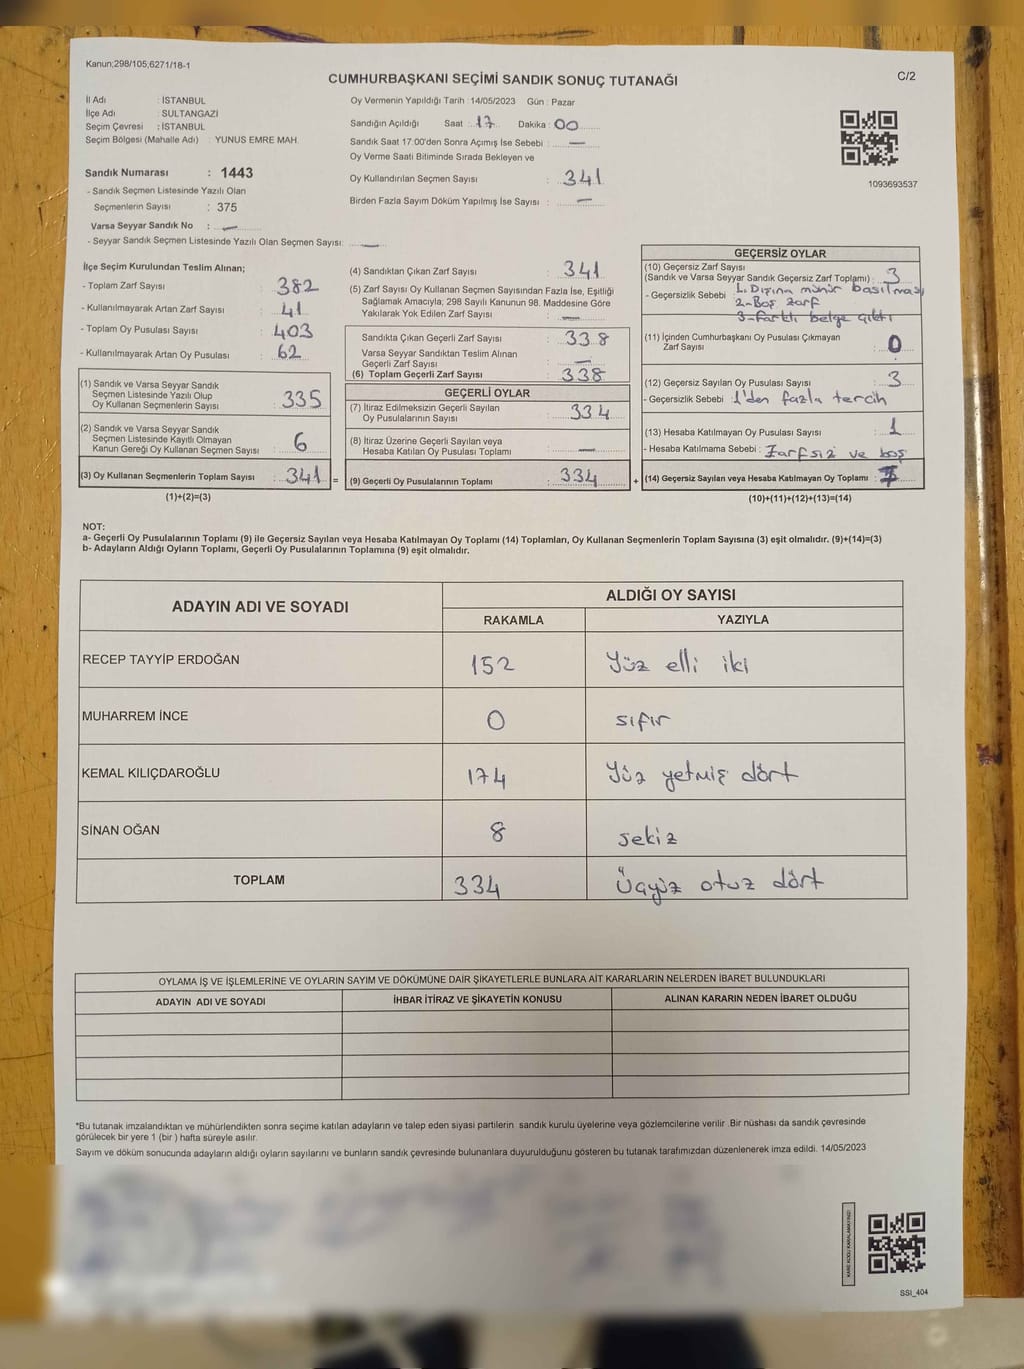 Kanun;298/105,6271/18-1
C/2
CUMHURBAŞKANI SEÇİMİ SANDIK SONUÇ TUTANAĞI
İl Adı : İSTANBUL
İlçe Adı : SULTANGAZİ
Seçim Çevresi : İSTANBUL
Seçim Bölgesi (Mahalle Adı) : YUNUS EMRE MAH.
Sandık Numarası : 1443
- Sandık Seçmen Listesinde Yazılı Olan
Seçmenlerin Sayısı : 375
Varsa Seyyar Sandık No : —
- Seyyar Sandık Seçmen Listesinde Yazılı Olan Seçmen Sayısı: —
Oy Vermenin Yapıldığı Tarih : 14/05/2023 Gün : Pazar
Sandığın Açıldığı Saat : 17 Dakika : 00
Sandık Saat 17.00'den Sonra Açımış İse Sebebi : —
Oy Verme Saati Bitiminde Sırada Bekleyen ve
Oy Kullandırılan Seçmen Sayısı : 341
Birden Fazla Sayım Döküm Yapılmış İse Sayısı : —
1093693537
İlçe Seçim Kurulundan Teslim Alınan;
- Toplam Zarf Sayısı : 382
- Kullanılmayarak Artan Zarf Sayısı : 41
- Toplam Oy Pusulası Sayısı : 403
- Kullanılmayarak Artan Oy Pusulası : 62
(1) Sandık ve Varsa Seyyar Sandık
Seçmen Listesinde Yazılı Olup
Oy Kullanan Seçmenlerin Sayısı : 335
(2) Sandık ve Varsa Seyyar Sandık
Seçmen Listesinde Kayıtlı Olmayan
Kanun Gereği Oy Kullanan Seçmen Sayısı : 6
(3) Oy Kullanan Seçmenlerin Toplam Sayısı : 341 =
(1)+(2)=(3)
(4) Sandıktan Çıkan Zarf Sayısı : 341
(5) Zarf Sayısı Oy Kullanan Seçmen Sayısından Fazla İse, Eşitliği
Sağlamak Amacıyla; 298 Sayılı Kanunun 98. Maddesine Göre
Yakılarak Yok Edilen Zarf Sayısı : —
Sandıkta Çıkan Geçerli Zarf Sayısı : 338
Varsa Seyyar Sandıktan Teslim Alınan
Geçerli Zarf Sayısı : —
(6) Toplam Geçerli Zarf Sayısı : 338
GEÇERLİ OYLAR
(7) İtiraz Edilmeksizin Geçerli Sayılan
Oy Pusulalarının Sayısı : 334
(8) İtiraz Üzerine Geçerli Sayılan veya
Hesaba Katılan Oy Pusulası Toplamı : —
(9) Geçerli Oy Pusulalarının Toplamı : 334 +
GEÇERSİZ OYLAR
(10) Geçersiz Zarf Sayısı
(Sandık ve Varsa Seyyar Sandık Geçersiz Zarf Toplamı) : 3
- Geçersizlik Sebebi : 1. Dışına mühür basılması
2-Boş zarf
3-Farklı belge çıktı
(11) İçinden Cumhurbaşkanı Oy Pusulası Çıkmayan
Zarf Sayısı : 0
(12) Geçersiz Sayılan Oy Pusulası Sayısı : 3
- Geçersizlik Sebebi : 1'den fazla tercih
(13) Hesaba Katılmayan Oy Pusulası Sayısı : 1
- Hesaba Katılmama Sebebi : Zarfsız ve boş
(14) Geçersiz Sayılan veya Hesaba Katılmayan Oy Toplamı : 7
(10)+(11)+(12)+(13)=(14)
NOT:
a- Geçerli Oy Pusulalarının Toplamı (9) ile Geçersiz Sayılan veya Hesaba Katılmayan Oy Toplamı (14) Toplamları, Oy Kullanan Seçmenlerin Toplam Sayısına (3) eşit olmalıdır. (9)+(14)=(3)
b- Adayların Aldığı Oyların Toplamı, Geçerli Oy Pusulalarının Toplamına (9) eşit olmalıdır.
ADAYIN ADI VE SOYADI
ALDIĞI OY SAYISI
RAKAMLA YAZIYLA
RECEP TAYYİP ERDOĞAN 152 Yüz elli iki
MUHARREM İNCE 0 sıfır
KEMAL KILIÇDAROĞLU 174 Yüz yetmiş dört
SİNAN OĞAN 8 sekiz
TOPLAM 334 Üçyüz otuz dört
OYLAMA İŞ VE İŞLEMLERİNE VE OYLARIN SAYIM VE DÖKÜMÜNE DAİR ŞİKAYETLERLE BUNLARA AİT KARARLARIN NELERDEN İBARET BULUNDUKLARI
ADAYIN ADI VE SOYADI İHBAR İTİRAZ VE ŞİKAYETİN KONUSU ALINAN KARARIN NEDEN İBARET OLDUĞU
*Bu tutanak imzalandıktan ve mühürlendikten sonra seçime katılan adayların ve talep eden siyasi partilerin sandık kurulu üyelerine veya gözlemcilerine verilir .Bir nüshası da sandık çevresinde
görülecek bir yere 1 (bir ) hafta süreyle asılır.
Sayım ve döküm sonucunda adayların aldığı oyların sayılarını ve bunların sandık çevresinde bulunanlara duyurulduğunu gösteren bu tutanak tarafımızdan düzenlenerek imza edildi. 14/05/2023
KARE KODU KARALAMAYINIZ!
SSI_404